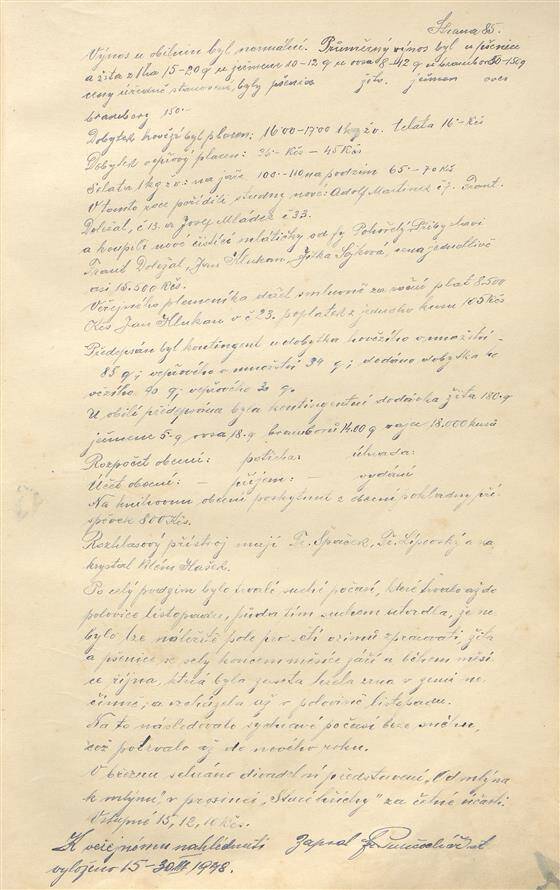 Strana 85.
Výnos u obilnin byl normální. Průměrný výnos byl u pšenice
a žita z 1ha 15-20 q u ječmene 10-12 q u ovsa 8-12 q u brambor
ceny úředně stanovené, byly pšenice žito ječmen oves
brambory 150-
Dobytek hovězí byl placen: 16.00-17.00 1kg ž.v. telata 16- Kčs
Dobytek vepřový placen: 35- Kčs - 45 Kčs
Selata 1kg ž.v: na jaře 100-110 na podzim 65-70 Kčs
V tomto roce pořídili studny nové: Adolf Martinek č 7. Frant.
Doležal, č 13. a Josef Mládek č 33.
a koupili nové čistící mlátičky od fy Pohořelý Přibyslavi
Frant Doležal, Jan Hlukan, Jitka Sojková, cena jednotlivě
asi 15.500 Kčs.
Veřejného plemeníka držel smluvně za roční plat 8.500
Kčs Jan Hlukan v č 23. poplatek z jednoho kusu 105 Kčs
Předepsán byl kontingent u dobytka hovězího v množství -
85 q; vepřového v množství 34 q; dodáno dobytka ho
vězího q; vepřového q.
U obilí předepsána byla kontingentní dodávka žita 180.q
ječmene 5.q ovsa 18.q bramborů 1400 q vajec 18.000 kusů
Rozpočet obecní: potřeba: úhrada:
Účet obecní: - příjem: - vydání
Na knihovnu obecní poskytnut z obecní pokladny pří
spěvek 800 Kčs.
Rozhlasový přístroj mají Fr. Špaček, Fr. Lipovský a na
krystal Vilém Hašek.
Po celý podzim bylo trvalé suché počasí, které trvalo až do
polovice listopadu, půda tím suchem utvrdla, že ne
bylo lze náležitě pole pro setí ozimů zpracovati, žita
a pšenice se sely koncem měsíce září a během měsí
ce října, která byla zaseta ležela zrna v zemi ne
činně, a vzcházela až v polovině listopadu.
Na to následovalo sychravé počasí beze sněhu,
což potrvalo až do nového roku.
V březnu sehráno divadelní představení „Od mlýna
k mlýnu", v prosinci „Staré hříchy" za četné účasti.
Vstupné 15, 12, 10 Kčs.
K veřejnému nahlédnutí zapsal
vyloženo 15-30/III. 1948.